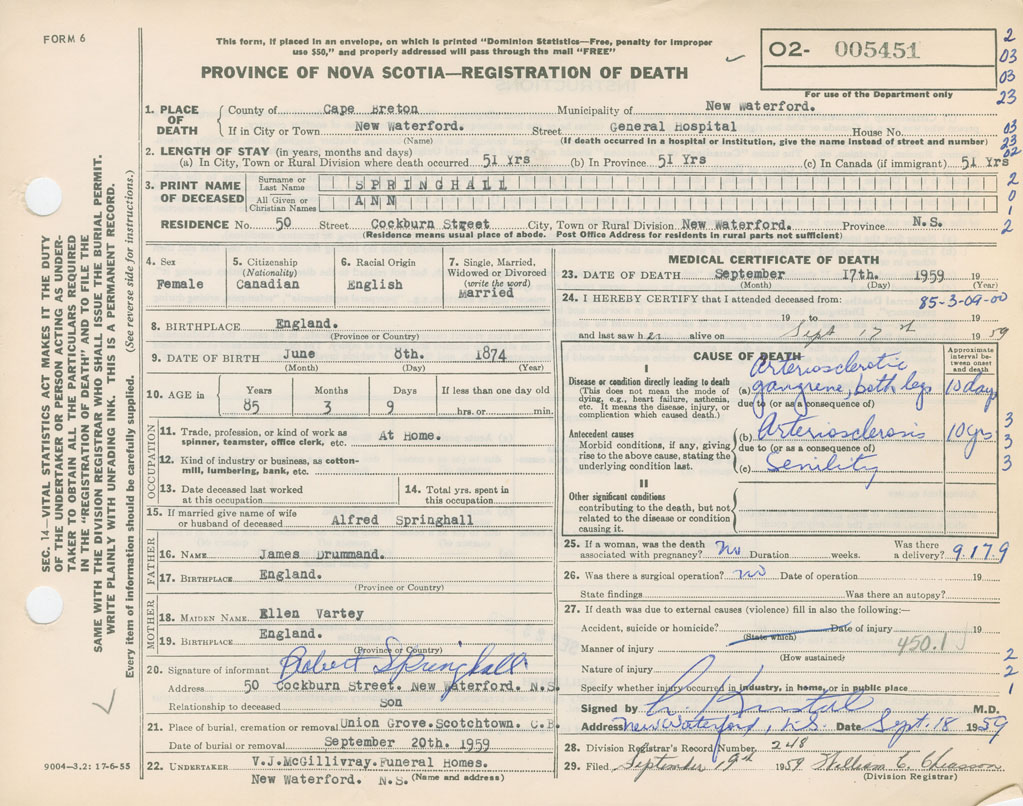 FORM 6
This form, if placed in an envelope, on which is printed "Dominion Statistics—Free, penalty for improper
use $50," and properly addressed will pass through the mail "FREE"
PROVINCE OF NOVA SCOTIA—REGISTRATION OF DEATH
02- 005451
For use of the Department only
2
03
03
23
03
23
02
2
0
1
2
SEC. 14—VITAL STATISTICS ACT MAKES IT THE DUTY
OF THE UNDERTAKER OR PERSON ACTING AS UNDER-
TAKER TO OBTAIN ALL THE PARTICULARS REQUIRED
IN THE "REGISTRATION OF DEATH" AND TO FILE THE
SAME WITH THE DIVISION REGISTRAR WHO SHALL ISSUE THE BURIAL PERMIT.
WRITE PLAINLY WITH UNFADING INK. THIS IS A PERMANENT RECORD.
Every item of information should be carefully supplied. (See reverse side for instructions.)
1. PLACE OF DEATH
County of Cape Breton Municipality of New Waterford.
If in City or Town New Waterford. Street General Hospital House No.
(Name) (If death occurred in a hospital or institution, give the name instead of street and number)
2. LENGTH OF STAY (in years, months and days)
(a) In City, Town or Rural Division where death occurred 51 Yrs (b) In Province 51 Yrs (c) In Canada (if immigrant) 51 Yrs
3. PRINT NAME OF DECEASED
Surname or Last Name SPRINGHALL
All Given or Christian Names ANN
RESIDENCE No. 50 Street Cockburn Street City, Town or Rural Division New Waterford. Province N.S.
(Residence means usual place of abode. Post Office Address for residents in rural parts not sufficient)
4. Sex
Female
5. Citizenship
(Nationality)
Canadian
6. Racial Origin
English
7. Single, Married,
Widowed or Divorced
(write the word)
Married
8. BIRTHPLACE England.
(Province or Country)
9. DATE OF BIRTH June 8th. 1874
(Month) (Day) (Year)
10. AGE in
Years Months Days If less than one day old
85 3 9 hrs. or min.
OCCUPATION
11. Trade, profession, or kind of work as
spinner, teamster, office clerk, etc. At Home.
12. Kind of industry or business, as cotton-
mill, lumbering, bank, etc.
13. Date deceased last worked
at this occupation
14. Total yrs. spent in
this occupation
15. If married give name of wife
or husband of deceased Alfred Springhall
FATHER
16. NAME James Drummand.
17. BIRTHPLACE England.
(Province or Country)
MOTHER
18. MAIDEN NAME Ellen Vartey
19. BIRTHPLACE England.
(Province or Country)
20. Signature of informant Robert Springhall
Address 50 Cockburn Street. New Waterford. N.S.
Relationship to deceased Son
21. Place of burial, cremation or removal Union Grove.Scotchtown. C.B.
Date of burial or removal September 20th. 1959
22. UNDERTAKER V.J.McGillivray.Funeral Homes.
New Waterford. N.S. (Name and address)
9004—3.2: 17-6-55
MEDICAL CERTIFICATE OF DEATH
23. DATE OF DEATH September 17th. 1959 19
(Month) (Day) (Year)
24. I HEREBY CERTIFY that I attended deceased from: 85-3-09-00
19 to 19
and last saw h er alive on Sept 17 1959
CAUSE OF DEATH
Approximate
interval be-
tween onset
and death
I
Disease or condition directly leading to death
(This does not mean the mode of
dying, e.g., heart failure, asthenia,
etc. It means the disease, injury, or
complication which caused death.)
Arteriosclerotic
(a) gangrene, both legs 10 days
due to (or as a consequence of)
Antecedent causes
Morbid conditions, if any, giving
rise to the above cause, stating the
underlying condition last.
(b) Arteriosclerosis 10 yrs.
due to (or as a consequence of)
(c) Senility
3
3
3
II
Other significant conditions
contributing to the death, but not
related to the disease or condition
causing it.
25. If a woman, was the death
associated with pregnancy? no Duration weeks.
Was there
a delivery? 9179
26. Was there a surgical operation? no Date of operation 19
State findings Was there an autopsy?
27. If death was due to external causes (violence) fill in also the following:—
Accident, suicide or homicide? Date of injury 19
(State which)
Manner of injury 450.1
(How sustained)
Nature of injury
Specify whether injury occurred in industry, in home, or in public place
2
2
1
Signed by M.D.
Address New Waterford, N.S. Date Sept. 18 1959
28. Division Registrar's Record Number 248
29. Filed September 19th 1959 William C. Chiasson
(Division Registrar)